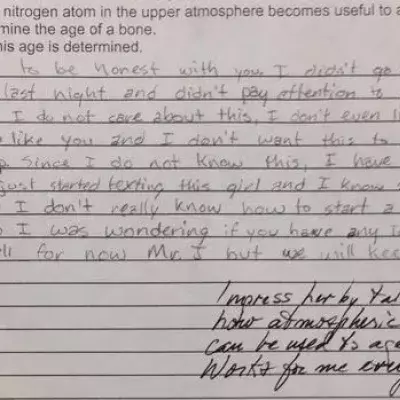 nitrogen atom in the upper atmosphere becomes useful to a
mine the age of a bone.
his age is determined.
to be honest with you, I didn't go
last night and didn't pay attention to
I do not care about this, I don't even li
like you and I don't want this to
Since I do not know this, I have
just started texting this girl and I know
I don't really know how to start a
I was wondering if you have any I
for now Mr. J but we will kee
Impress her by tal
how atmospheric
can be used to age
Works for me every